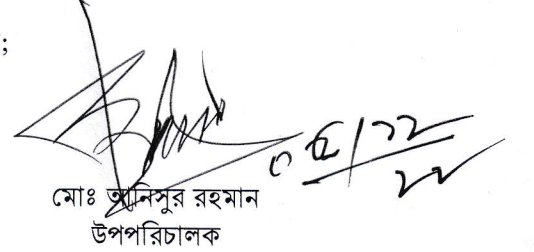 ;
০৫/১২
২২
মোঃ আনিসুর রহমান
উপপরিচালক